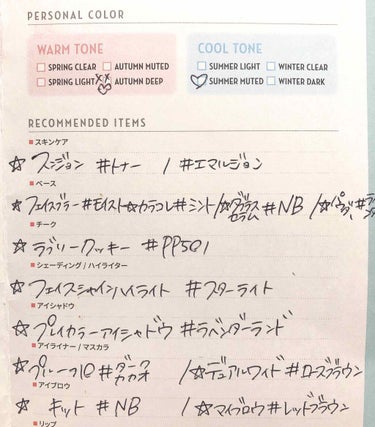 PERSONAL COLOR
WARM TONE
SPRING CLEAR AUTUMN MUTED
SPRING LIGHT AUTUMN DEEP
COOL TONE
SUMMER LIGHT WINTER CLEAR
SUMMER MUTED WINTER DARK
RECOMMENDED ITEMS
スキンケア
☆ スージョン #トナー / #エマルジョン
ベース
☆ フェイスブラー #モイスト ☆カラコレ #ミント / ☆ダブラス セラム #NB / ☆
チーク
☆ ラブリークッキー #PP501
シェーディング / ハイライター
☆ フェイスシャインハイライト #スターライト
アイシャドウ
☆ プレイカラーアイシャドウ #ラベンダーランド
アイライナー / マスカラ
☆ プルーフ10 #ダークカカオ / ☆デュアルワイド #ローズブラウン
アイブロウ
☆ キット #NB / ☆マイブロウ #レッドブラウン
リップ